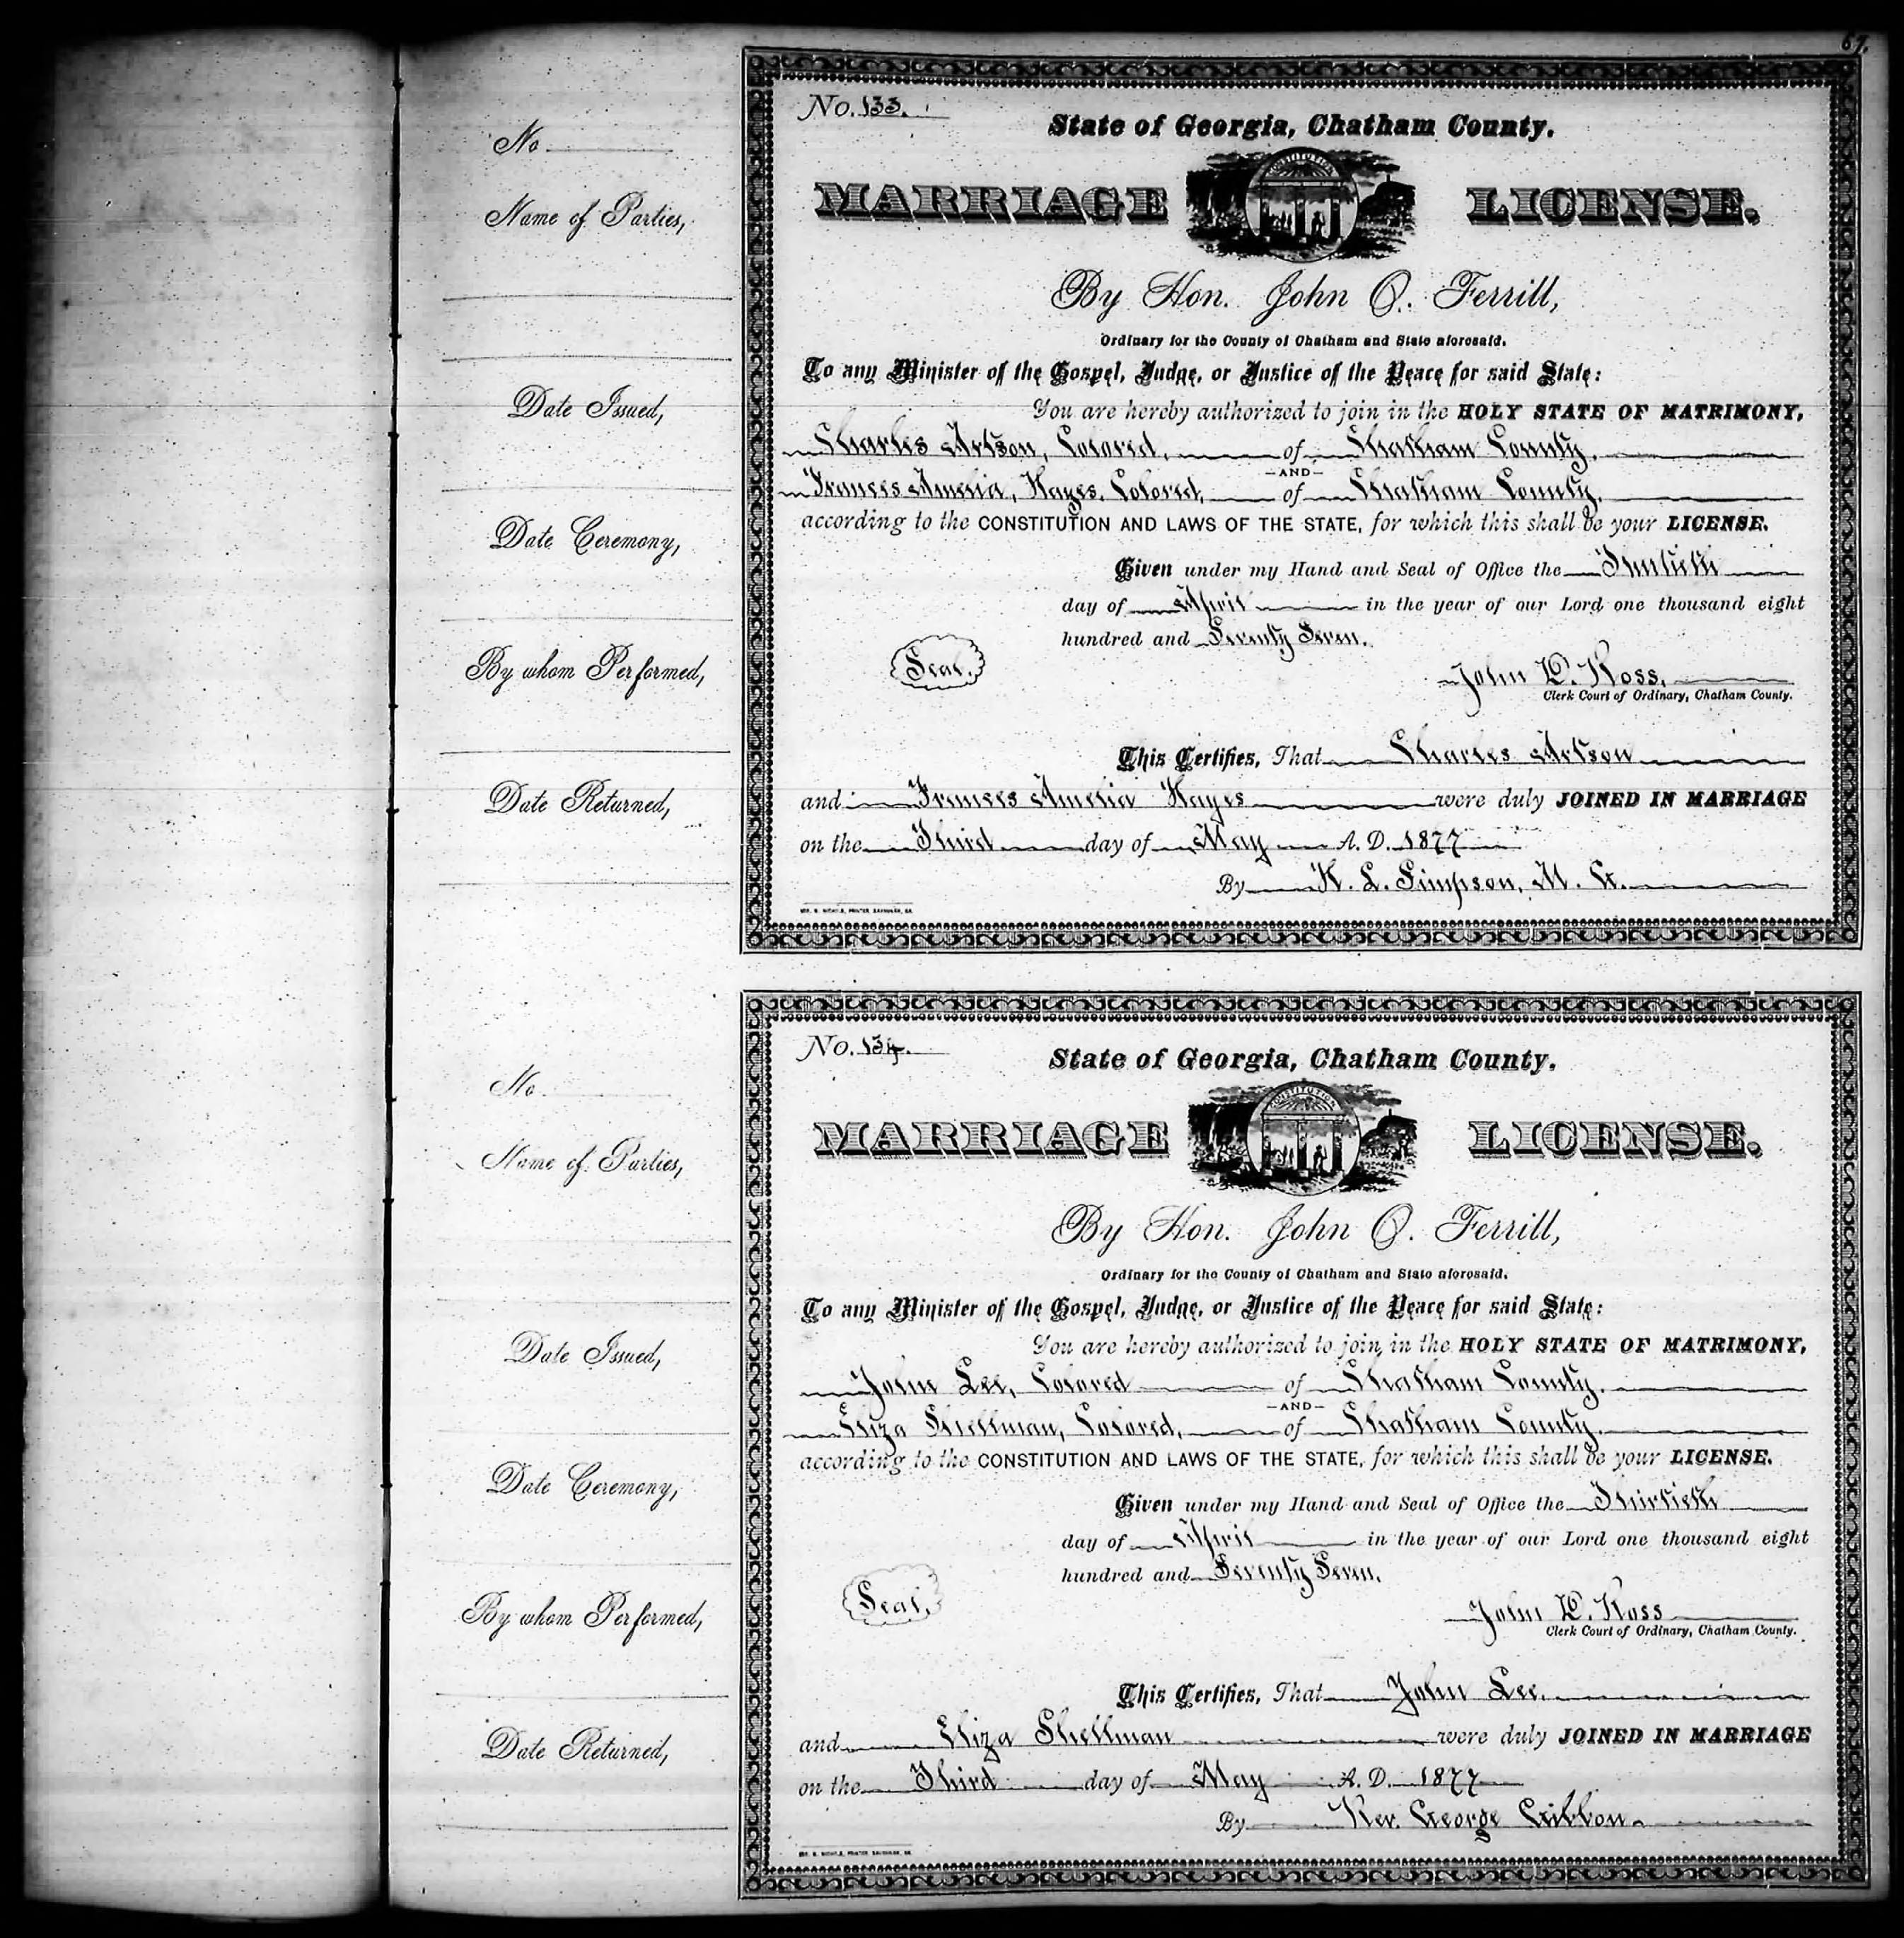 67.
No.
Name of Parties,
Date Issued,
Date Ceremony,
By whom Performed,
Date Returned,
No. 133.
State of Georgia, Chatham County.
MARRIAGE LICENSE.
CONSTITUTION
By Hon. John O. Ferrill,
Ordinary for the County of Chatham and State aforesaid.
To any Minister of the Gospel, Judge, or Justice of the Peace for said State:
You are hereby authorized to join in the HOLY STATE OF MATRIMONY,
Charles Artson, Colored, of Chatham County.
AND
Frances Amelia, Hayes, Colored, of Chatham County.
according to the CONSTITUTION AND LAWS OF THE STATE, for which this shall be your LICENSE.
Given under my Hand and Seal of Office the Thirtieth
day of April in the year of our Lord one thousand eight
hundred and Seventy Seven.
Seal.
John D. Ross,
Clerk Court of Ordinary, Chatham County.
This Certifies, That Charles Artson
and Frances Amelia Hayes were duly JOINED IN MARRIAGE
on the Third day of May A. D. 1877
By K. L. Simpson, M. G.
GEO. N. NICHOLS, PRINTER, SAVANNAH, GA.
No
Name of Parties,
Date Issued,
Date Ceremony,
By whom Performed,
Date Returned,
No. 134.
State of Georgia, Chatham County.
MARRIAGE LICENSE.
CONSTITUTION
By Hon. John O. Ferrill,
Ordinary for the County of Chatham and State aforesaid.
To any Minister of the Gospel, Judge, or Justice of the Peace for said State:
You are hereby authorized to join in the HOLY STATE OF MATRIMONY,
John Lee, Colored of Chatham County.
AND
Eliza Shellman, Colored, of Chatham County.
according to the CONSTITUTION AND LAWS OF THE STATE, for which this shall be your LICENSE.
Given under my Hand and Seal of Office the Thirtieth
day of April in the year of our Lord one thousand eight
hundred and Seventy Seven.
Seal.
John D. Ross
Clerk Court of Ordinary, Chatham County.
This Certifies, That John Lee,
and Eliza Shellman were duly JOINED IN MARRIAGE
on the Third day of May A. D. 1877
By Rev. George Gibbon.
GEO. N. NICHOLS, PRINTER, SAVANNAH, GA.